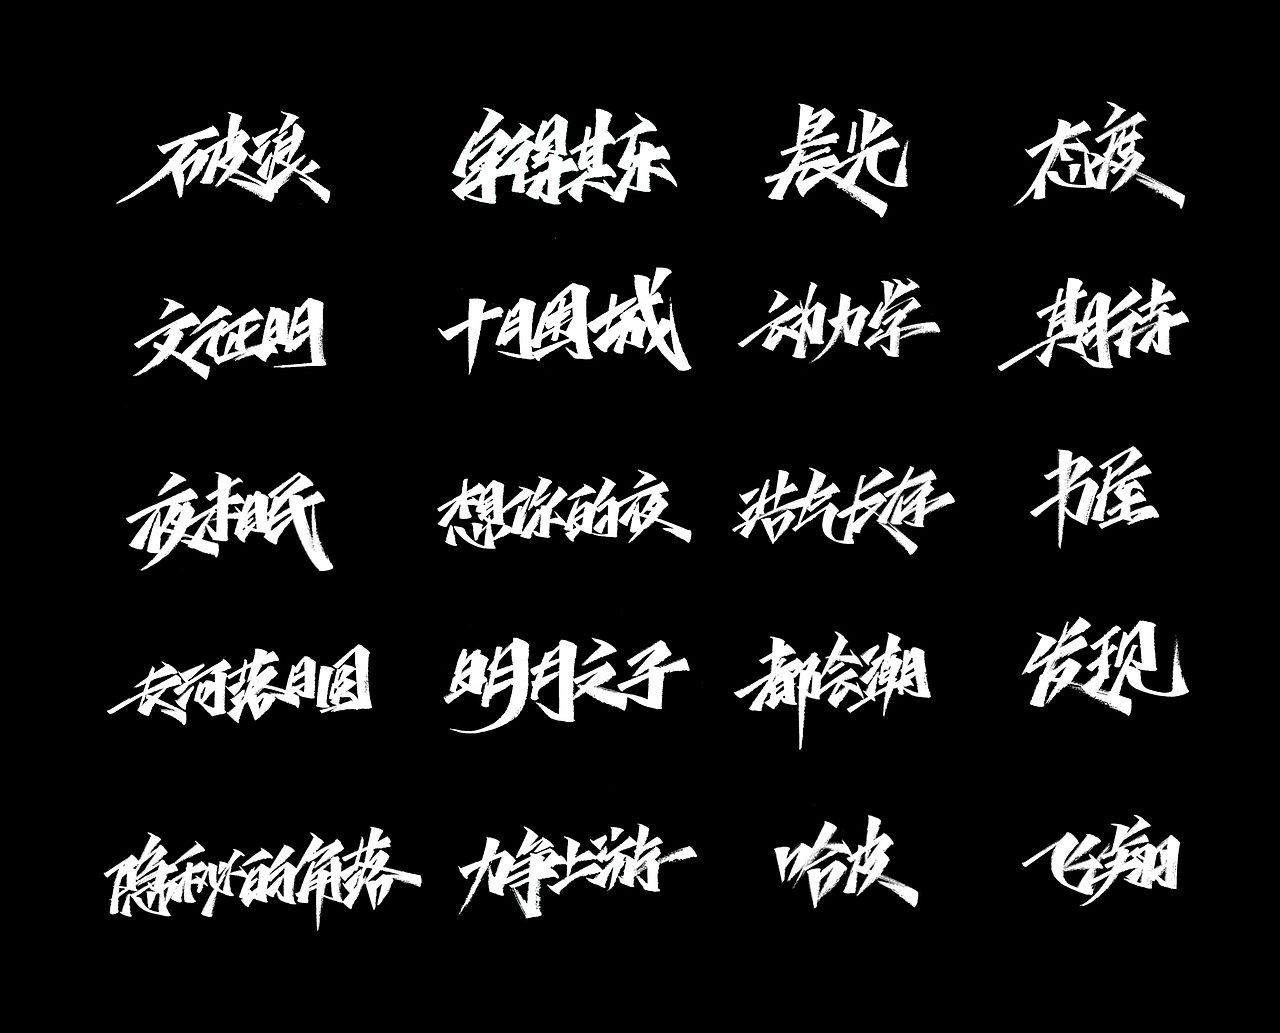 破浪 字得其乐 晨光 态度
文征明 十月围城 动力学 期待
夜未眠 想你的夜 浩气长存 书屋
长河落日圆 明月之子 都会潮 发现
隐秘的角落 力争上游 哈皮 飞翔